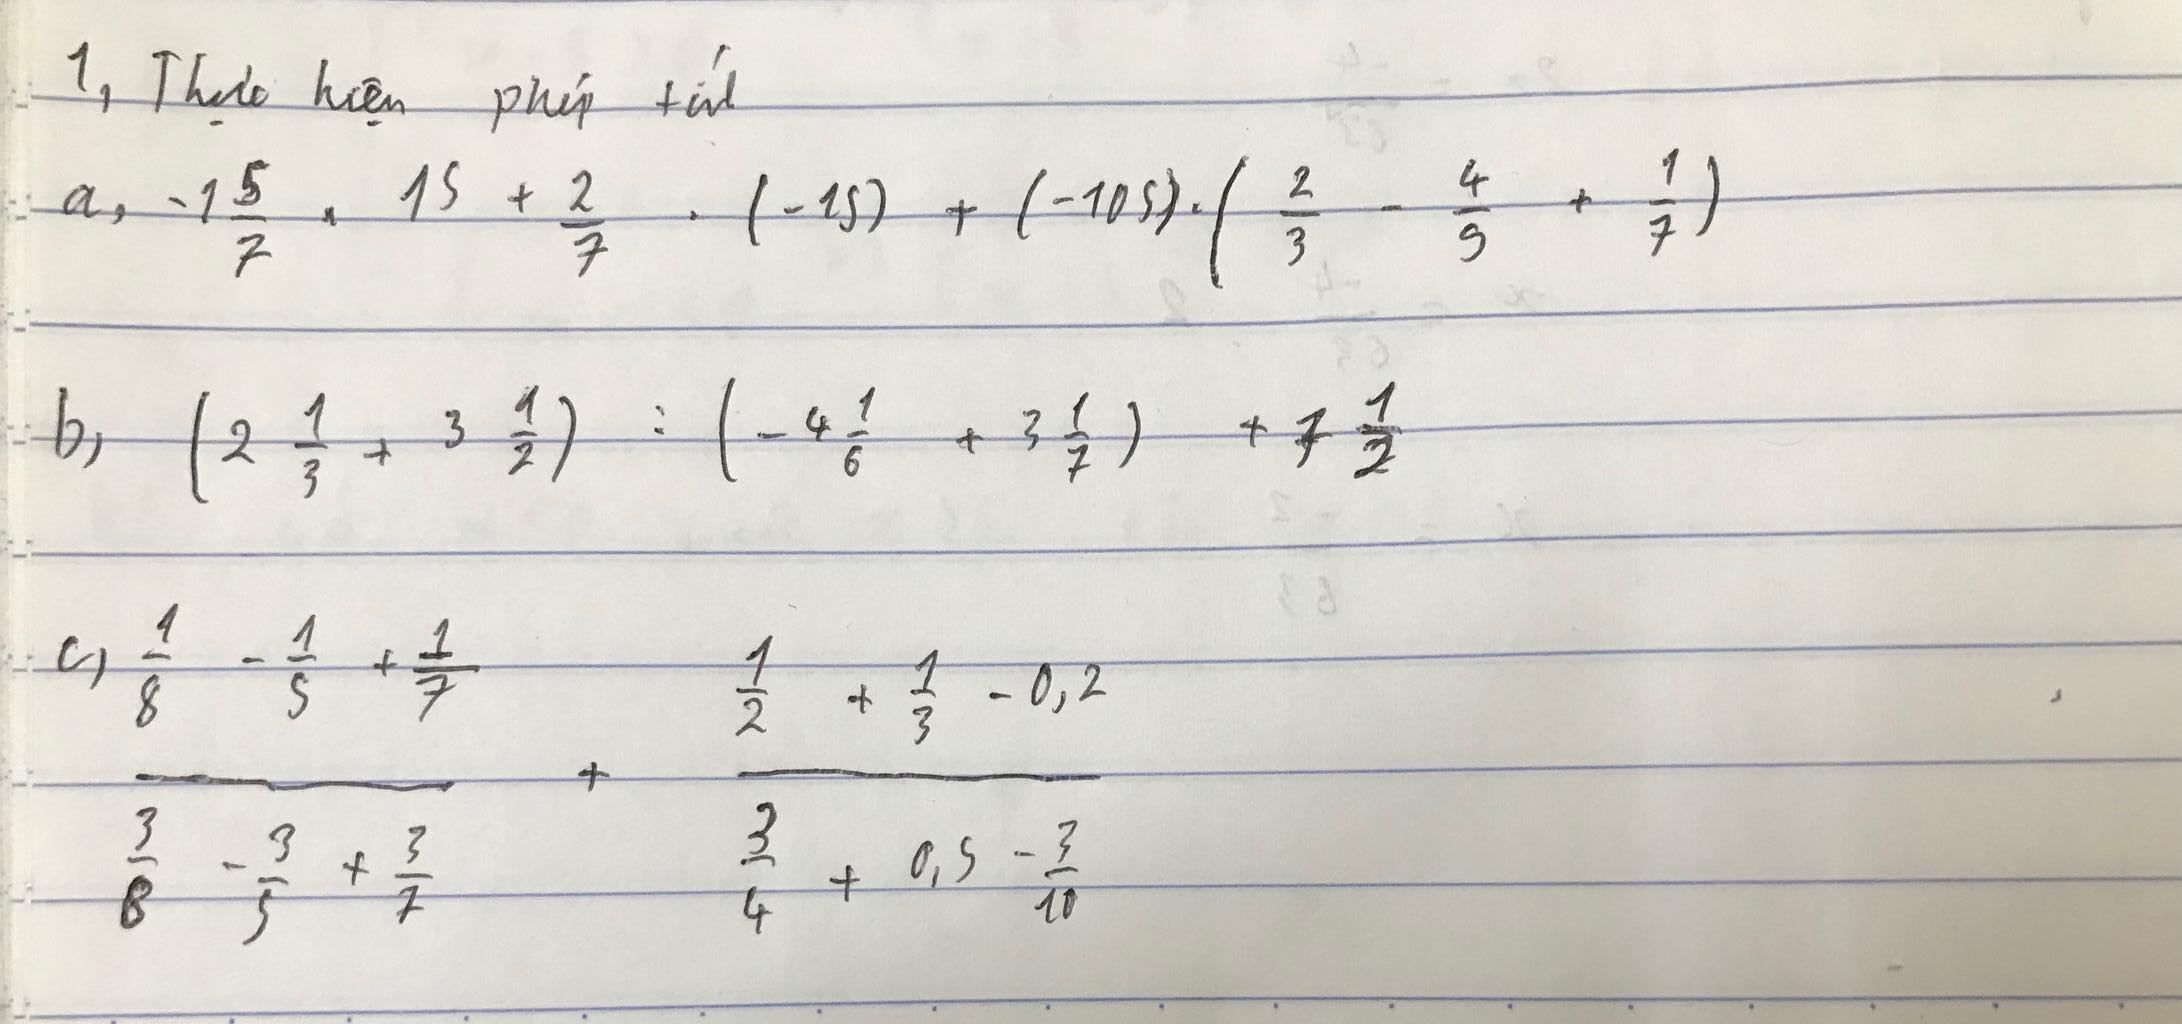 1, Thực hiện phép tính
a, -1 5/7 . 15 + 2/7 . (-15) + (-105) . ( 2/3 - 4/9 + 1/7 )
b, ( 2 1/3 + 3 1/2 ) : ( -4 1/6 + 3 1/7 ) + 7 1/2
c, 1/8 - 1/5 + 1/7   1/2 + 1/3 - 0,2
+
3/8 - 3/5 + 3/7   3/4 + 0,5 - 3/10